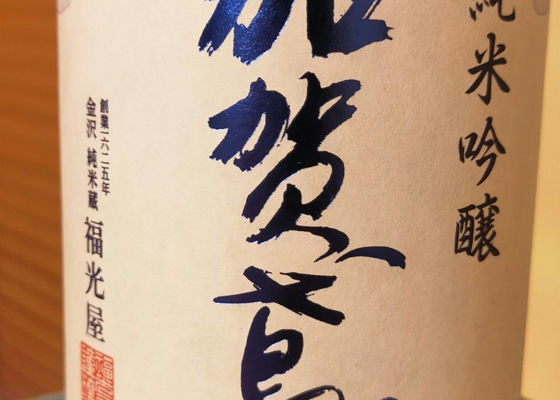 純米吟醸
加賀鳶
創業一六二五年
金沢 純米蔵 福光屋